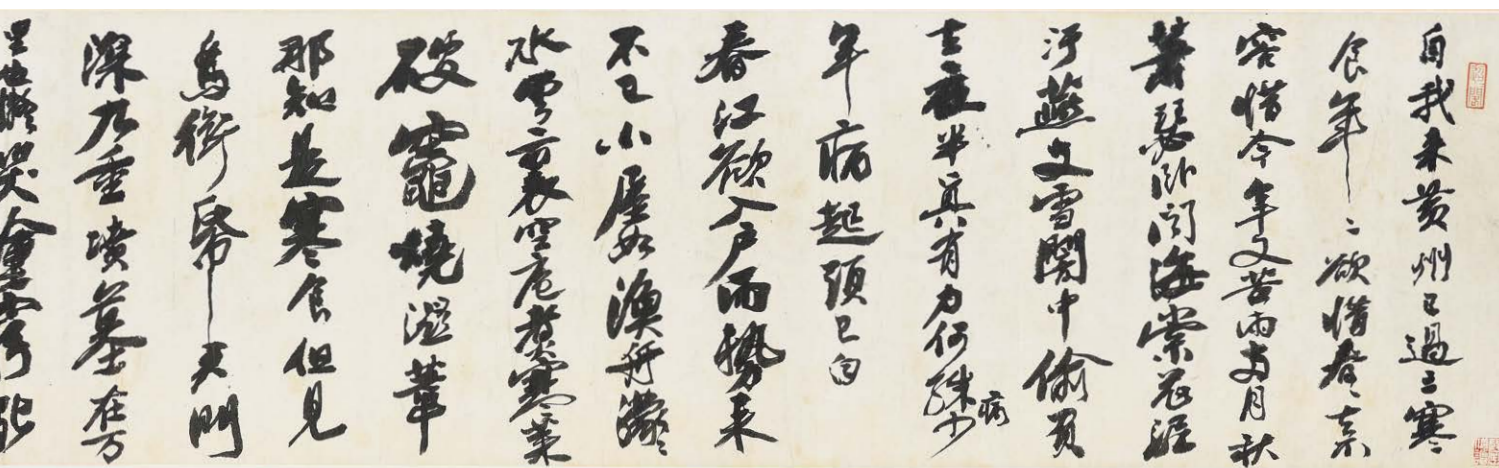 自我来黃州已過三寒
食年〻欲惜春〻去不
容惜今年又苦雨兩月秋
蕭瑟臥聞海棠花泥
汙燕支雪闇中偷負
去夜半真有力何殊病少
年病起頭已白
春江欲入戶雨勢来
不已小屋如漁舟濛〻
水雲裏空庖煮寒菜
破竈燒濕葦
那知是寒食但見
烏銜帋君門
深九重墳墓在万
里也擬哭塗窮死